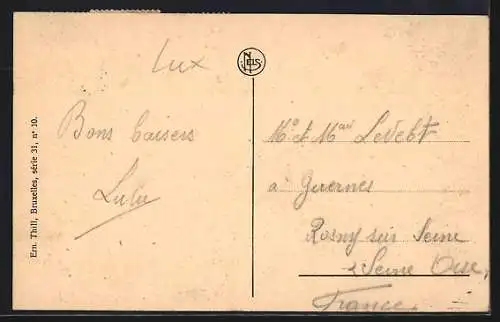 Lux
Bons baisers
Lulu
Ern. Thill, Bruxelles, série 31, n° 10.
NELS
Mr et Mme
à Guernes
Rosny sur Seine
Seine Oise
France